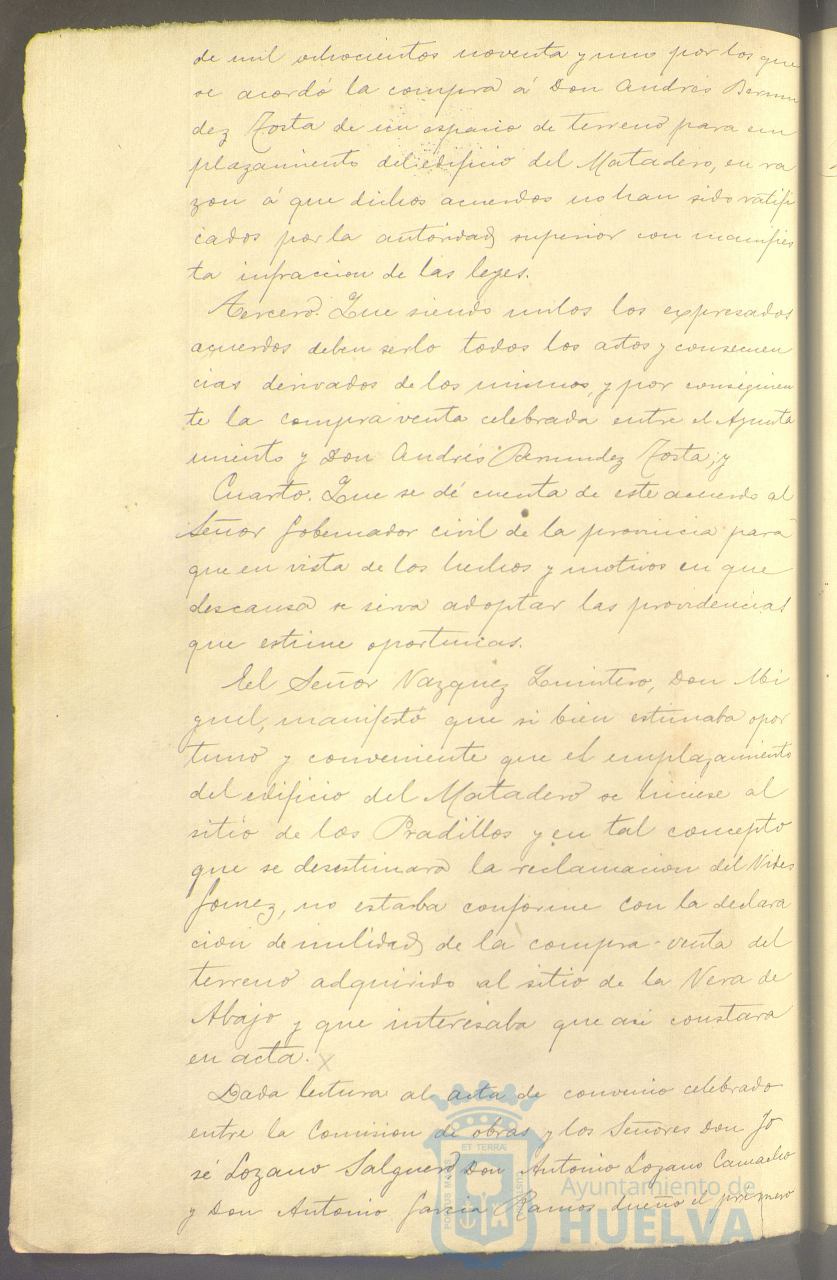 de mil ochocientos noventa y uno por los que
se acordó la compra á Don Andrés Bermu
dez Tosta de un espacio de terreno para em
plazamiento del edificio del Matadero, en ra
zon á que dichos acuerdos no han sido ratifi
cados por la autoridad superior con manifies
ta infraccion de las leyes.
Tercero. Que siendo nulos los expresados
acuerdos deben serlo todos los actos y consecuen
cias derivados de los mismos, y por consiguien
te la compra venta celebrada entre el Ayunta
miento y Don Andrés Bermudez Tosta; y
Cuarto. Que se dé cuenta de este acuerdo al
Señor Gobernador civil de la provincia para
que en vista de los hechos y motivos en que
descansa se sirva adoptar las providencias
que estime oportunas.
El Señor Vazquez Quintero, Don Mi
guel, manifestó que si bien estimaba opor
tuno y conveniente que el emplazamiento
del edificio del Matadero se hiciese al
sitio de los Pradillos y en tal concepto
que se desestimara la reclamacion del
Gomez, no estaba conforme con la declara
ción de nulidad de la compra-venta del
terreno adquirido al sitio de la Vera de
Abajo y que interesaba que asi constara
en acta. X
Dada lectura al acta de convenio celebrado
entre la Comision de obras y los Señores Don Jo
sé Lozano Salguero Don Antonio Lozano Camacho
y Don Antonio Garcia Ramos dueño el primero
PORTUS MARIS
ET TERRAE
CUSTODIA
Ayuntamiento de
HUELVA